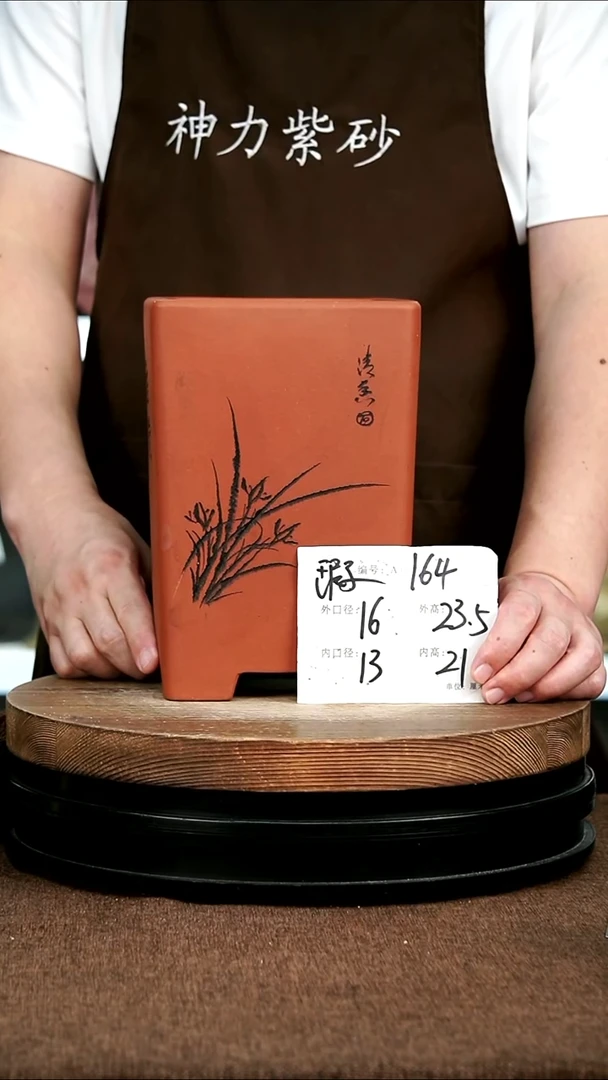 神力紫砂
清香
编号: A 164
外口径: 16 外高: 23.5
内口径: 13 内高: 21
单位: 厘米